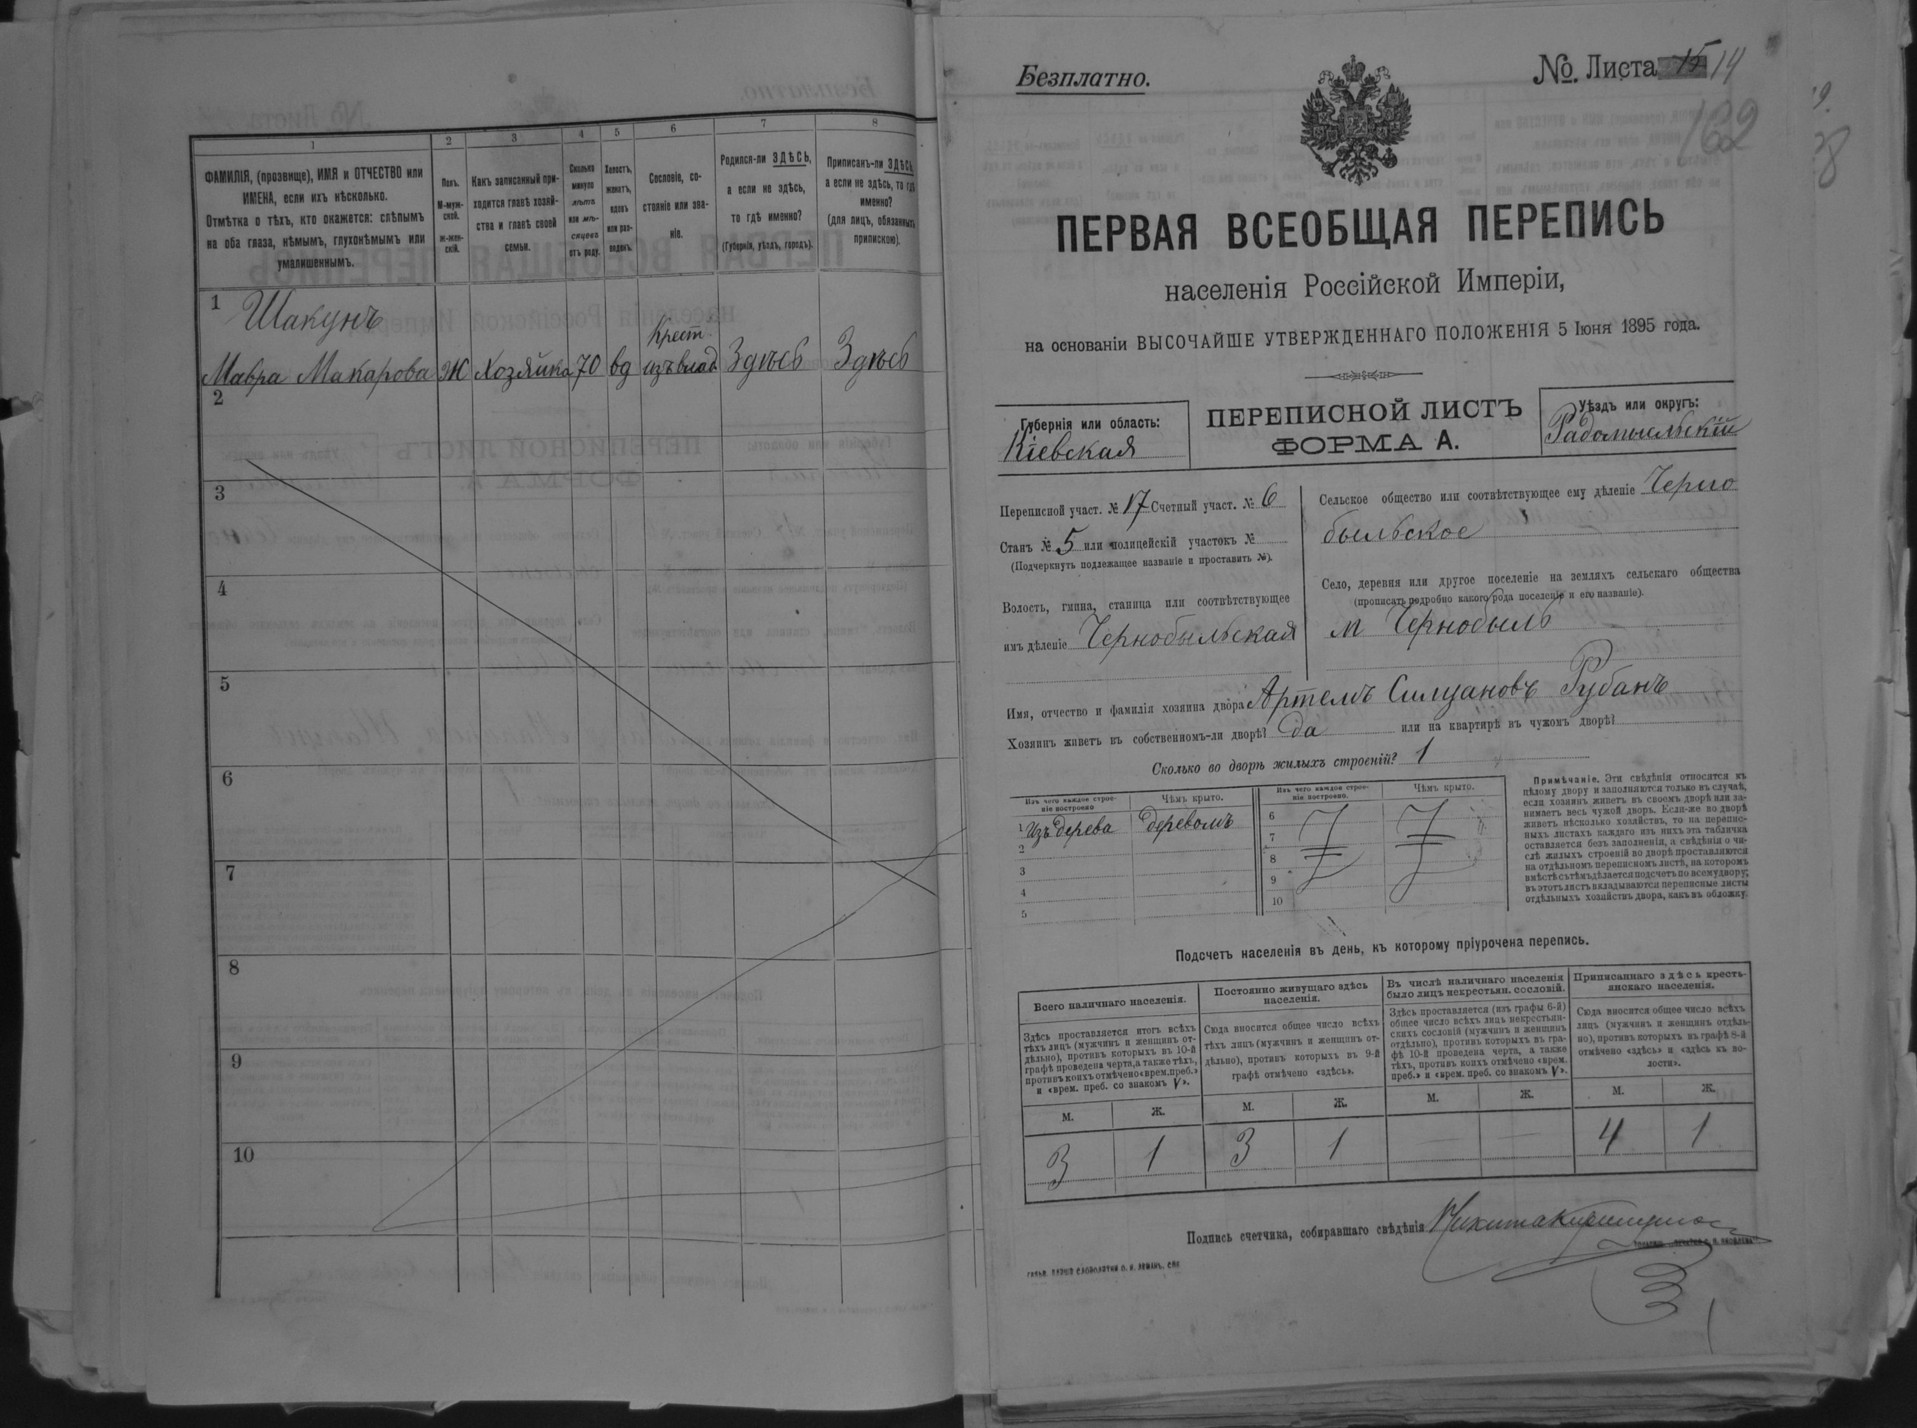 1
2
3
4
5
6
7
8
ФАМИЛІЯ, (прозвище), ИМЯ и ОТЧЕСТВО или
ИМЕНА, если ихъ нѣсколько.
Отмѣтка о тѣхъ, кто окажется: слѣпымъ
на оба глаза, нѣмымъ, глухонѣмымъ или
умалишеннымъ.
Полъ.
М-муж-
ской.
ж-жен-
скій.
Какъ записанный при-
ходится главѣ хозяй-
ства и главѣ своей
семьи.
Сколько
минуло
лѣтъ
или мѣ-
сяцевъ
отъ роду.
Холостъ,
женатъ,
вдовъ
или раз-
веденъ.
Сословіе, со-
стояніе или зва-
ніе.
Родился-ли ЗДѢСЬ,
а если не здѣсь,
то гдѣ именно?
(Губернія, уѣздъ, городъ).
Приписанъ-ли ЗДѢСЬ,
а если не здѣсь, то гдѣ
именно?
(для лицъ, обязанныхъ
припискою).
1
Шакунъ
Мавра Макарова
Ж
Хозяйка
70
вд
Крест.
изъ влад
Здѣсь
Здѣсь
2
3
4
5
6
7
8
9
10
Безплатно.
№ Листа 15 14
162
ПЕРВАЯ ВСЕОБЩАЯ ПЕРЕПИСЬ
населенія Россійской Имперіи,
на основаніи ВЫСОЧАЙШЕ УТВЕРЖДЕННАГО ПОЛОЖЕНІЯ 5 Іюня 1895 года.
Губернія или область:
Кіевская
ПЕРЕПИСНОЙ ЛИСТЪ
ФОРМА А.
Уѣздъ или округъ:
Радомысльскій
Переписной участ. № 17 Счетный участ. № 6
Станъ № 5 или полицейскій участокъ №
(Подчеркнуть подлежащее названіе и проставить №).
Волость, гмина, станица или соотвѣтствующее
имъ дѣленіе Чернобыльская
Сельское общество или соотвѣтствующее ему дѣленіе Черно
быльское
Село, деревня или другое поселеніе на земляхъ сельскаго общества
(прописать подробно какого рода поселеніе и его названіе).
м Чернобыль
Имя, отчество и фамилія хозяина двора Артемъ Силуановъ Рубанъ
Хозяинъ живетъ въ собственномъ-ли дворѣ? да или на квартирѣ въ чужомъ дворѣ?
Сколько во дворѣ жилыхъ строеній? 1
Изъ чего каждое строе-
ніе построено
Чѣмъ крыто.
Изъ чего каждое строе-
ніе построено.
Чѣмъ крыто.
1 Изъ дерева деревомъ
2
3
4
5
6
7
8
9
10
Примѣчаніе. Эти свѣдѣнія относятся къ
цѣлому двору и заполняются только въ случаѣ,
если хозяинъ живетъ въ своемъ дворѣ или за-
нимаетъ весь чужой дворъ. Если-же во дворѣ
живетъ нѣсколько хозяйствъ, то на перепис-
ныхъ листахъ каждаго изъ нихъ эта табличка
оставляется безъ заполненія, а свѣдѣнія о чи-
слѣ жилыхъ строеній во дворѣ проставляются
на отдѣльномъ переписномъ листѣ, на которомъ
вмѣстѣ съ тѣмъ дѣлается подсчетъ по всему двору;
въ этотъ листъ вкладываются переписные листы
отдѣльныхъ хозяйствъ двора, какъ въ обложку.
Подсчетъ населенія въ день, къ которому пріурочена перепись.
Всего наличнаго населенія.
Здѣсь проставляется итогъ всѣхъ
тѣхъ лицъ (мужчинъ и женщинъ от-
дѣльно), противъ которыхъ въ 10-й
графѣ проведена черта, а также тѣхъ,
противъ коихъ отмѣчено «врем. преб.»
и «врем. преб. со знакомъ V».
Постоянно живущаго здѣсь
населенія.
Сюда вносится общее число всѣхъ
тѣхъ лицъ (мужчинъ и женщинъ от-
дѣльно), противъ которыхъ въ 9-й
графѣ отмѣчено «здѣсь».
Въ числѣ наличнаго населенія
было лицъ некрестьян. сословій.
Здѣсь проставляется (изъ графы 6-й)
общее число всѣхъ лицъ некрестьян-
скихъ сословій (мужчинъ и женщинъ
отдѣльно), противъ которыхъ въ гра-
фѣ 10-й проведена черта, а также
тѣхъ, противъ коихъ отмѣчено «врем.
преб.» и «врем. преб. со знакомъ V».
Приписаннаго здѣсь кресть-
янскаго населенія.
Сюда вносится общее число всѣхъ
лицъ (мужчинъ и женщинъ отдѣль-
но), противъ которыхъ въ графѣ 8-й
отмѣчено «здѣсь» и «здѣсь къ во-
лости».
М. Ж. М. Ж. М. Ж. М. Ж.
3 1 3 1 — — 4 1
Подпись счетчика, собиравшаго свѣдѣнія Никита
3